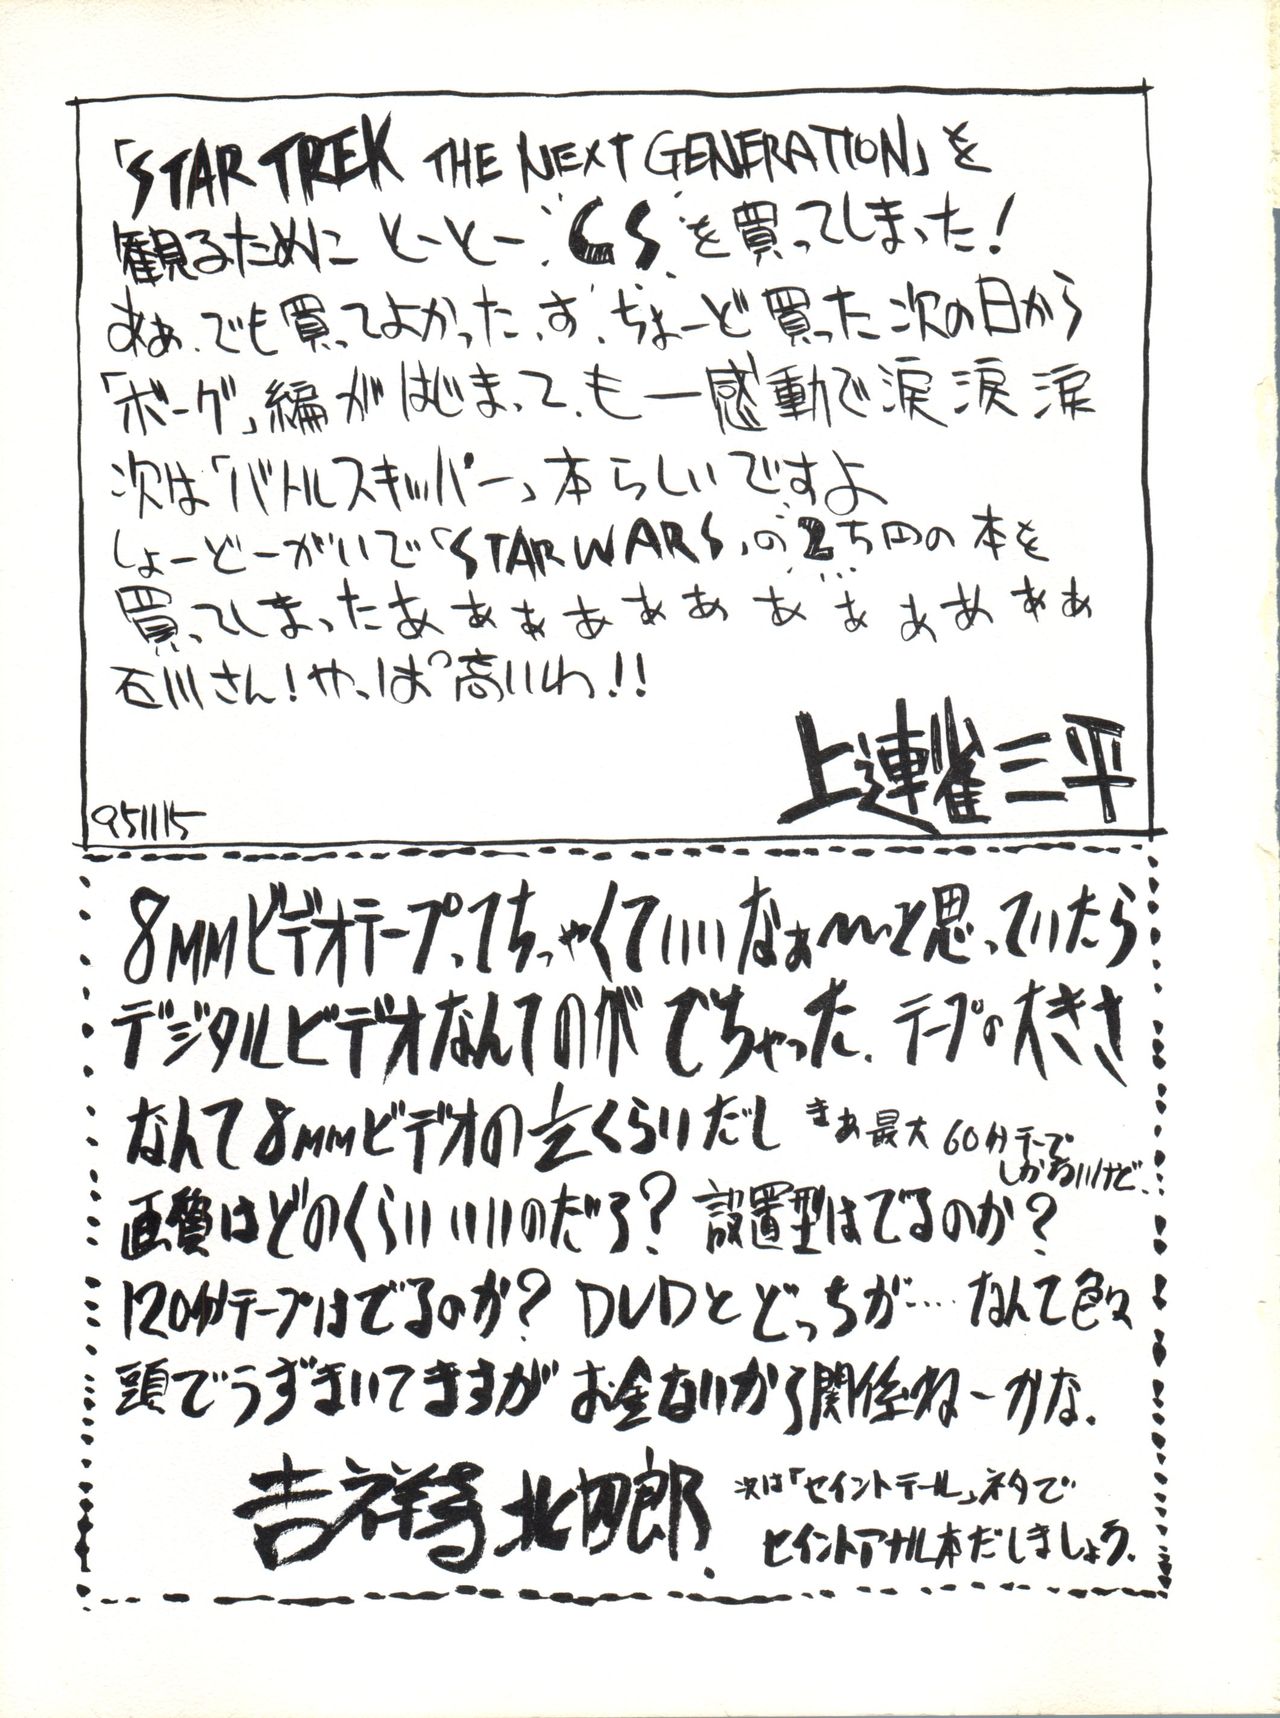 「STAR TREK THE NEXT GENERATION」を
観るために とーとー CS を買ってしまった!
あぁ、でも買ってよかったっす、ちょーど買った次の日から
「ボーグ」編がはじまって、も一感動で涙涙涙
次は「バトルスキッパー」本らしいですよ
しょーどーがいで「STAR WARS」の2ち円の本を
買ってしまったあぁぁぁぁぁぁぁぁぁぁぁ
石川さん!やっぱ高いわ!!
上連雀三平
951115
8MMビデオテープってちっちゃくていいなぁ〜と思っていたら
デジタルビデオなんてのがでちゃった、テープの大きさ
なんて8MMビデオの1/2くらいだし まぁ最大60分テープ
しかないけど、
画質はどのくらいいいのだろ?設置型はでるのか?
120分テープはでるのか?DVDとどっちが…なんて色々
頭でうずまいてますがお金ないから関係ねーかな、
吉祥寺北四郎、
次は「セイントテール」ネタで
セイントアナル本だしましょう、